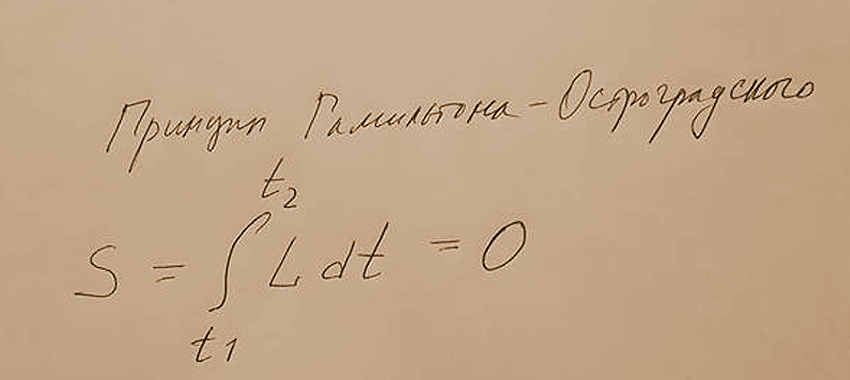 Принцип Гамильтона-Остроградского
S = ∫_{t1}^{t2} L dt = 0